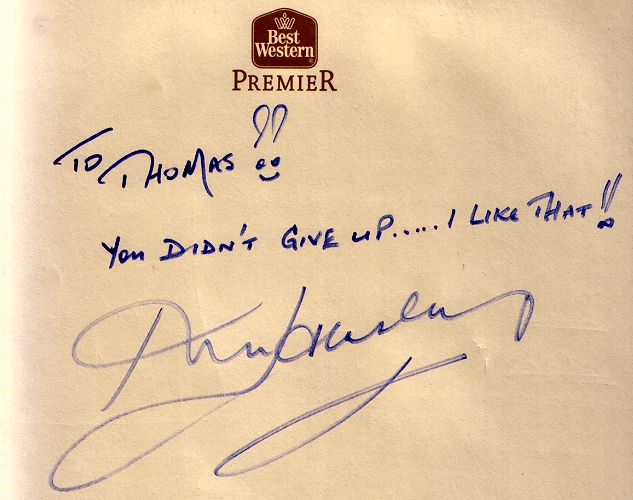 Best
Western
PREMIER
TO THOMAS!!
You DIDN'T GIVE UP..... I LIKE THAT!!